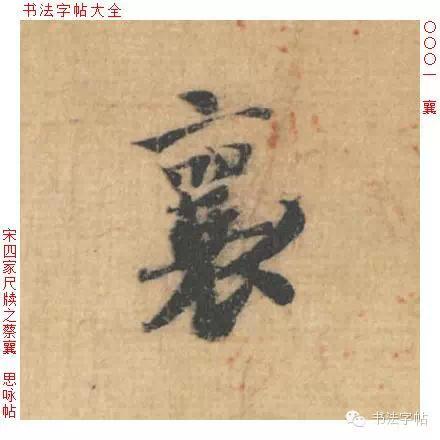 书法字帖大全
〇〇〇一 襄
襄
宋四家尺牍之蔡襄 思咏帖
书法字帖